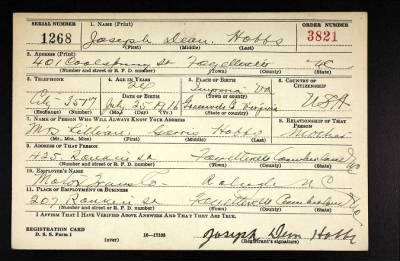 SERIAL NUMBER
1. NAME (Print)
ORDER NUMBER
1268
Joseph Dean Hobbs
3821
(First) (Middle) (Last)
2. ADDRESS (Print)
401 St Fayetteville NC
(Number and street or R. F. D. number) (Town) (County) (State)
3. TELEPHONE
4. AGE IN YEARS
5. PLACE OF BIRTH
6. COUNTRY OF CITIZENSHIP
Emporia Va
DATE OF BIRTH
(Town or county)
City-3577
July 25 1916
Greensville Virginia
USA
(Exchange) (Number)
(Mo.) (Day) (Yr.)
(State or country)
7. NAME OF PERSON WHO WILL ALWAYS KNOW YOUR ADDRESS
8. RELATIONSHIP OF THAT PERSON
Mrs Lillian Hobbs Mother
(Mr., Mrs., Miss) (First) (Middle) (Last)
9. ADDRESS OF THAT PERSON
425 Rankin St Fayetteville Cumberland NC
(Number and street or R. F. D. number) (Town) (County) (State)
10. EMPLOYER'S NAME
Raleigh N C
11. PLACE OF EMPLOYMENT OR BUSINESS
207 Rankin St Fayetteville Cumberland NC
(Number and street or R. F. D. number) (Town) (County) (State)
I AFFIRM THAT I HAVE VERIFIED ABOVE ANSWERS AND THAT THEY ARE TRUE.
REGISTRATION CARD
D. S. S. Form 1
(over)
16-17105
Joseph Dean Hobbs
(Registrant's signature)